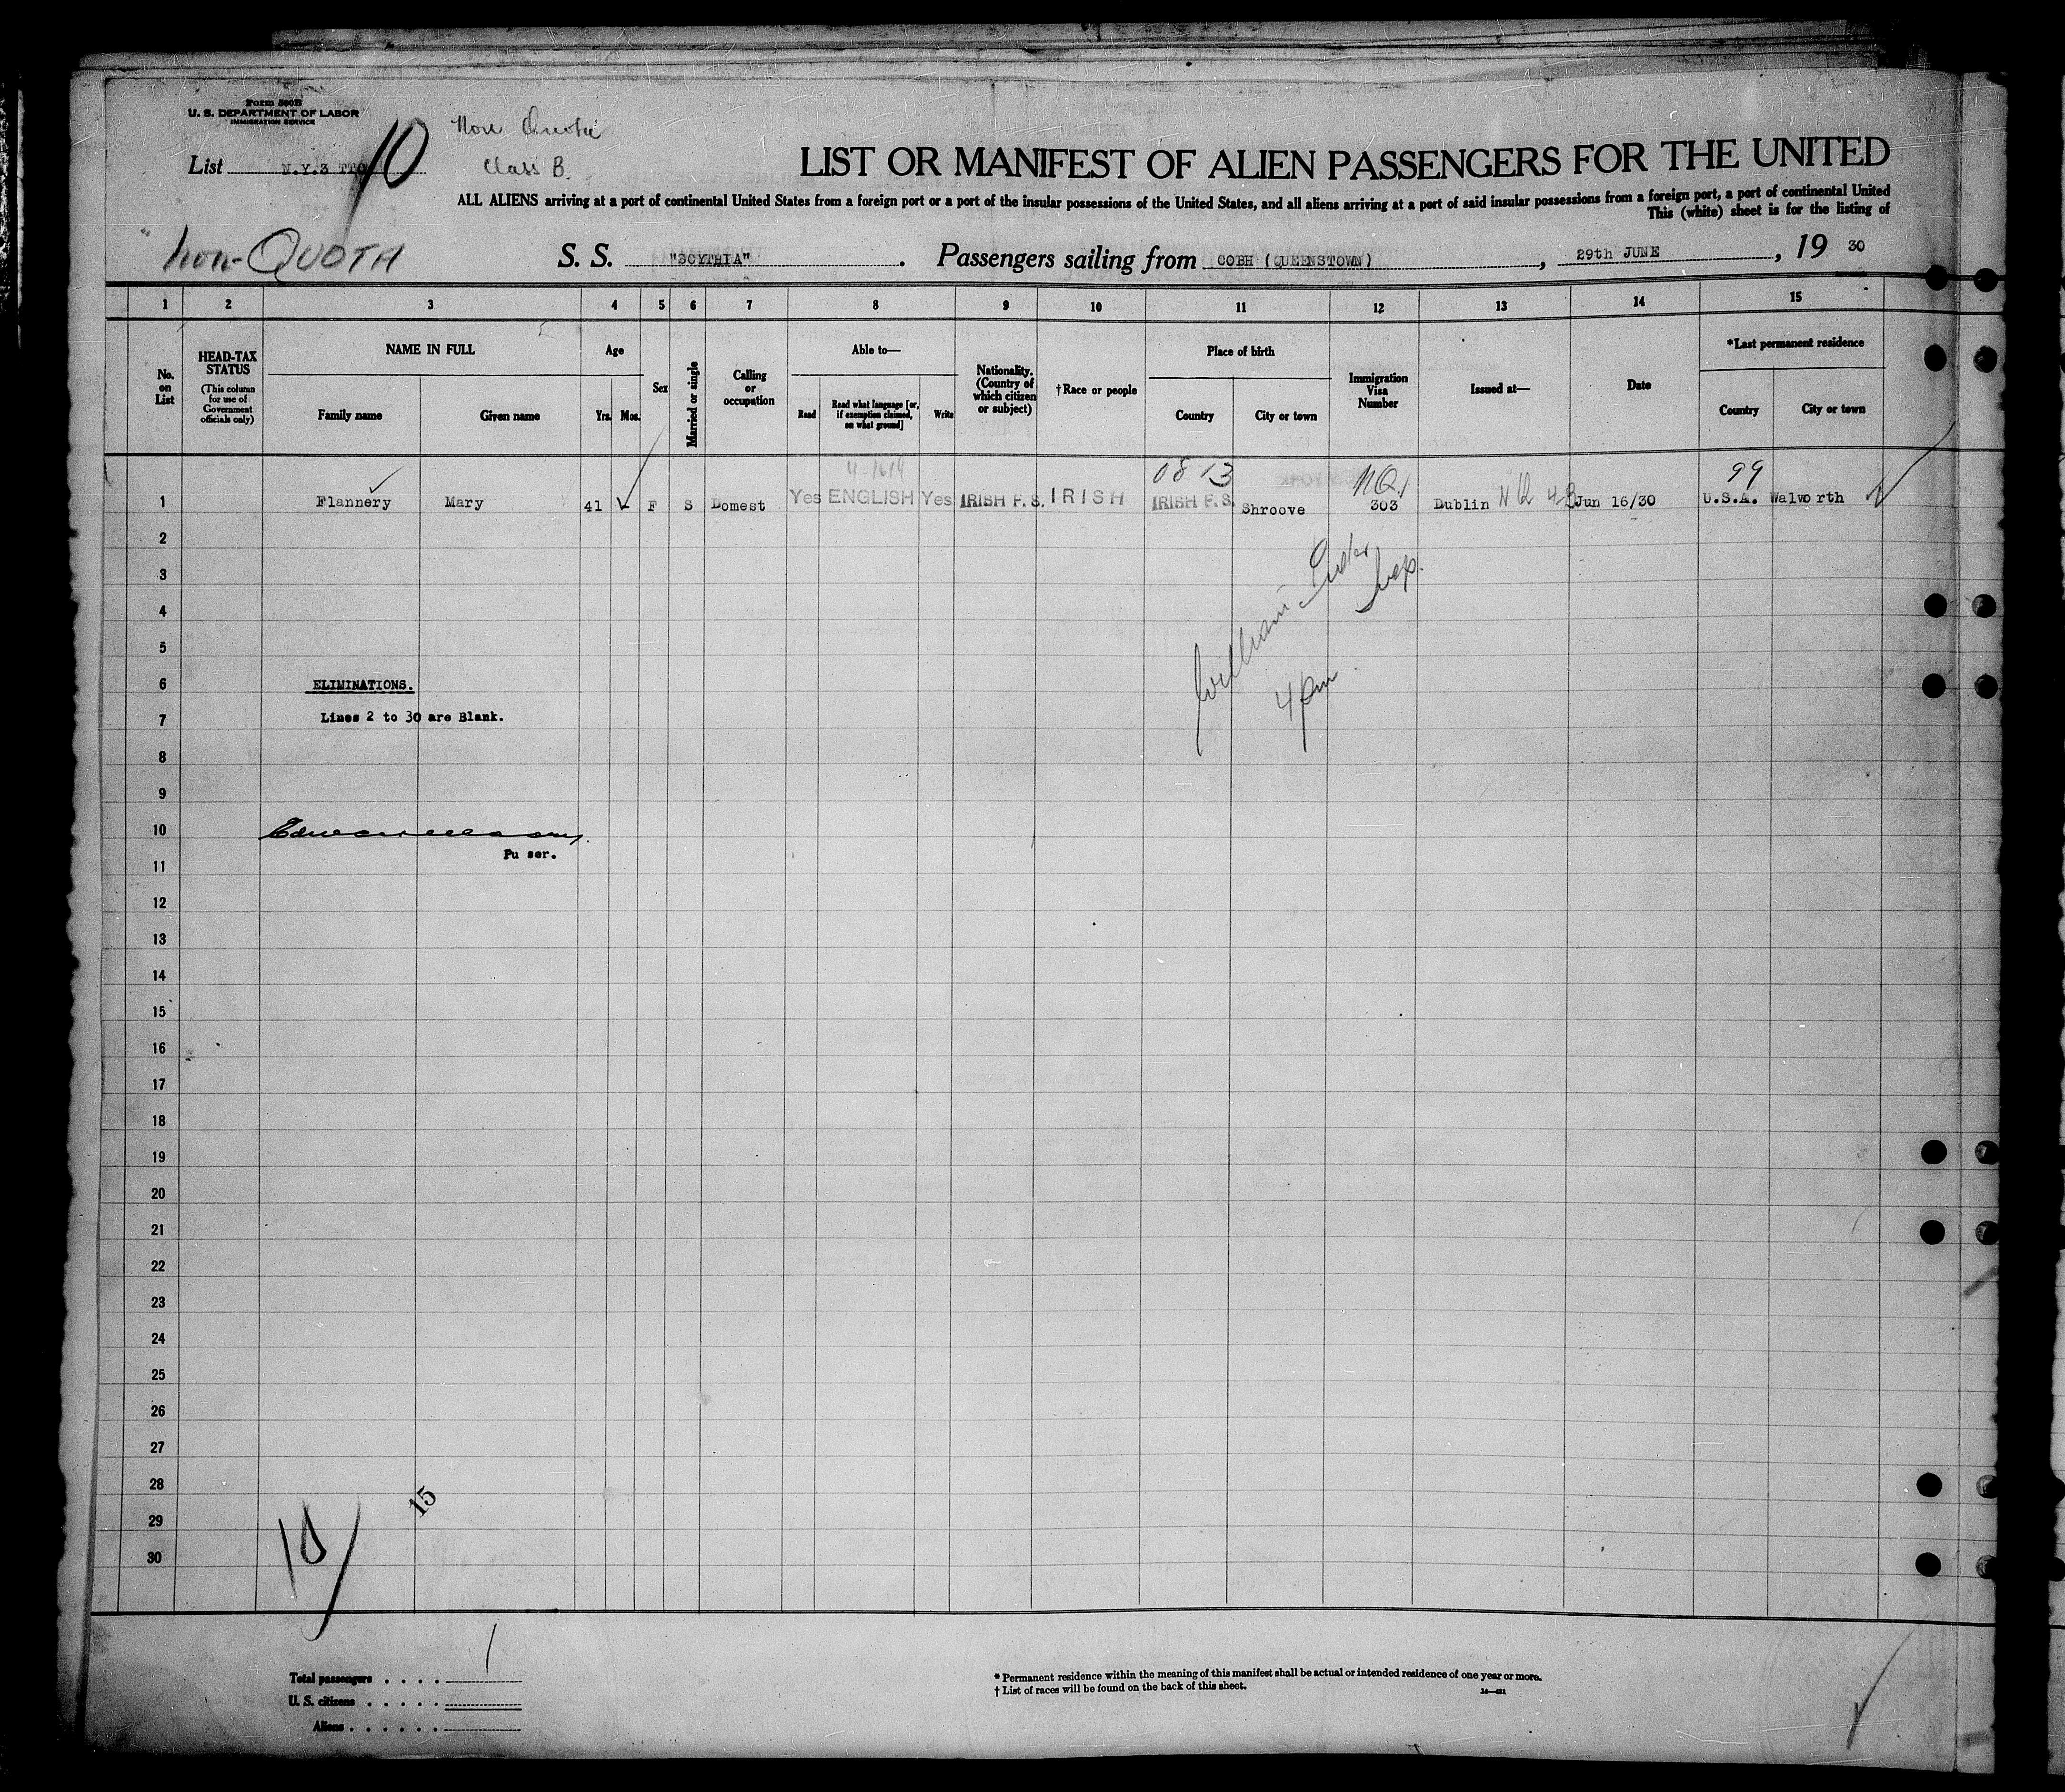 Form 500B
U. S. DEPARTMENT OF LABOR
IMMIGRATION SERVICE
Non Quota
Class B.
List N.Y.3 TTO 10
LIST OR MANIFEST OF ALIEN PASSENGERS FOR THE UNITED
ALL ALIENS arriving at a port of continental United States from a foreign port or a port of the insular possessions of the United States, and all aliens arriving at a port of said insular possessions from a foreign port, a port of continental United
This (white) sheet is for the listing of
Non-QUOTA
S. S. "SCYTHIA". Passengers sailing from COBH (QUEENSTOWN), 29th JUNE, 19 30
1 2 3 4 5 6 7 8 9 10 11 12 13 14 15
No. on List
HEAD-TAX STATUS
(This column for use of Government officials only)
NAME IN FULL
Family name
Given name
Age
Yrs. Mos.
Sex
Married or single
Calling or occupation
Able to—
Read
Read what language [or, if exemption claimed, on what ground]
Write
Nationality. (Country of which citizen or subject)
†Race or people
Place of birth
Country
City or town
Immigration Visa Number
Issued at—
Date
*Last permanent residence
Country
City or town
08 13
NQ
99
1 Flannery Mary 41 F S Domest Yes ENGLISH Yes IRISH F.S. IRISH IRISH F.S. Shroove 303 Dublin Jun 16/30 U.S.A. Walworth
2
3
4
5
6 ELIMINATIONS.
7 Lines 2 to 30 are Blank.
William
4 pm
8
9
10
Pu ser.
11
12
13
14
15
16
17
18
19
20
21
22
23
24
25
26
27
28
15
29
30
10
Total passengers . . . . 1
U. S. citizens . . . . .
Aliens . . . . . .
* Permanent residence within the meaning of this manifest shall be actual or intended residence of one year or more.
† List of races will be found on the back of this sheet.